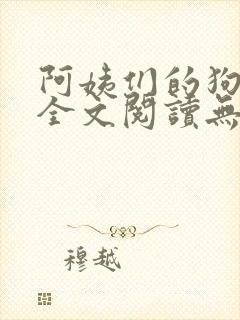 阿姨们的狗
全文閱讀無
穆越